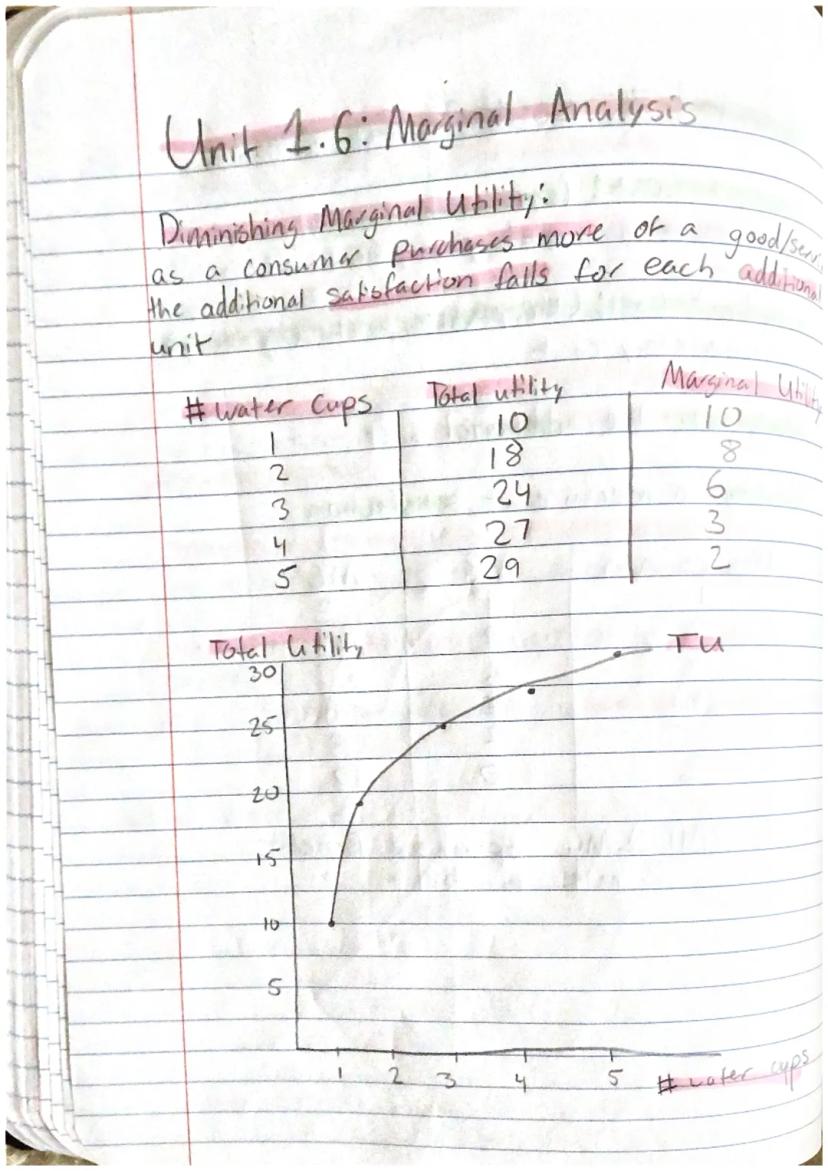 Unit 1.6: Marginal Analysis
Diminishing Marginal Utility:
as a consumer purchases more of a good/servi
the additional satisfaction falls for each additional
unit
# water cups Total utility Marginal Utility
1 10 10
2 18 8
3 24 6
4 27 3
5 29 2
Total Utility
TU
30
25
20
15
10
5
1 2 3 4 5 # water cups